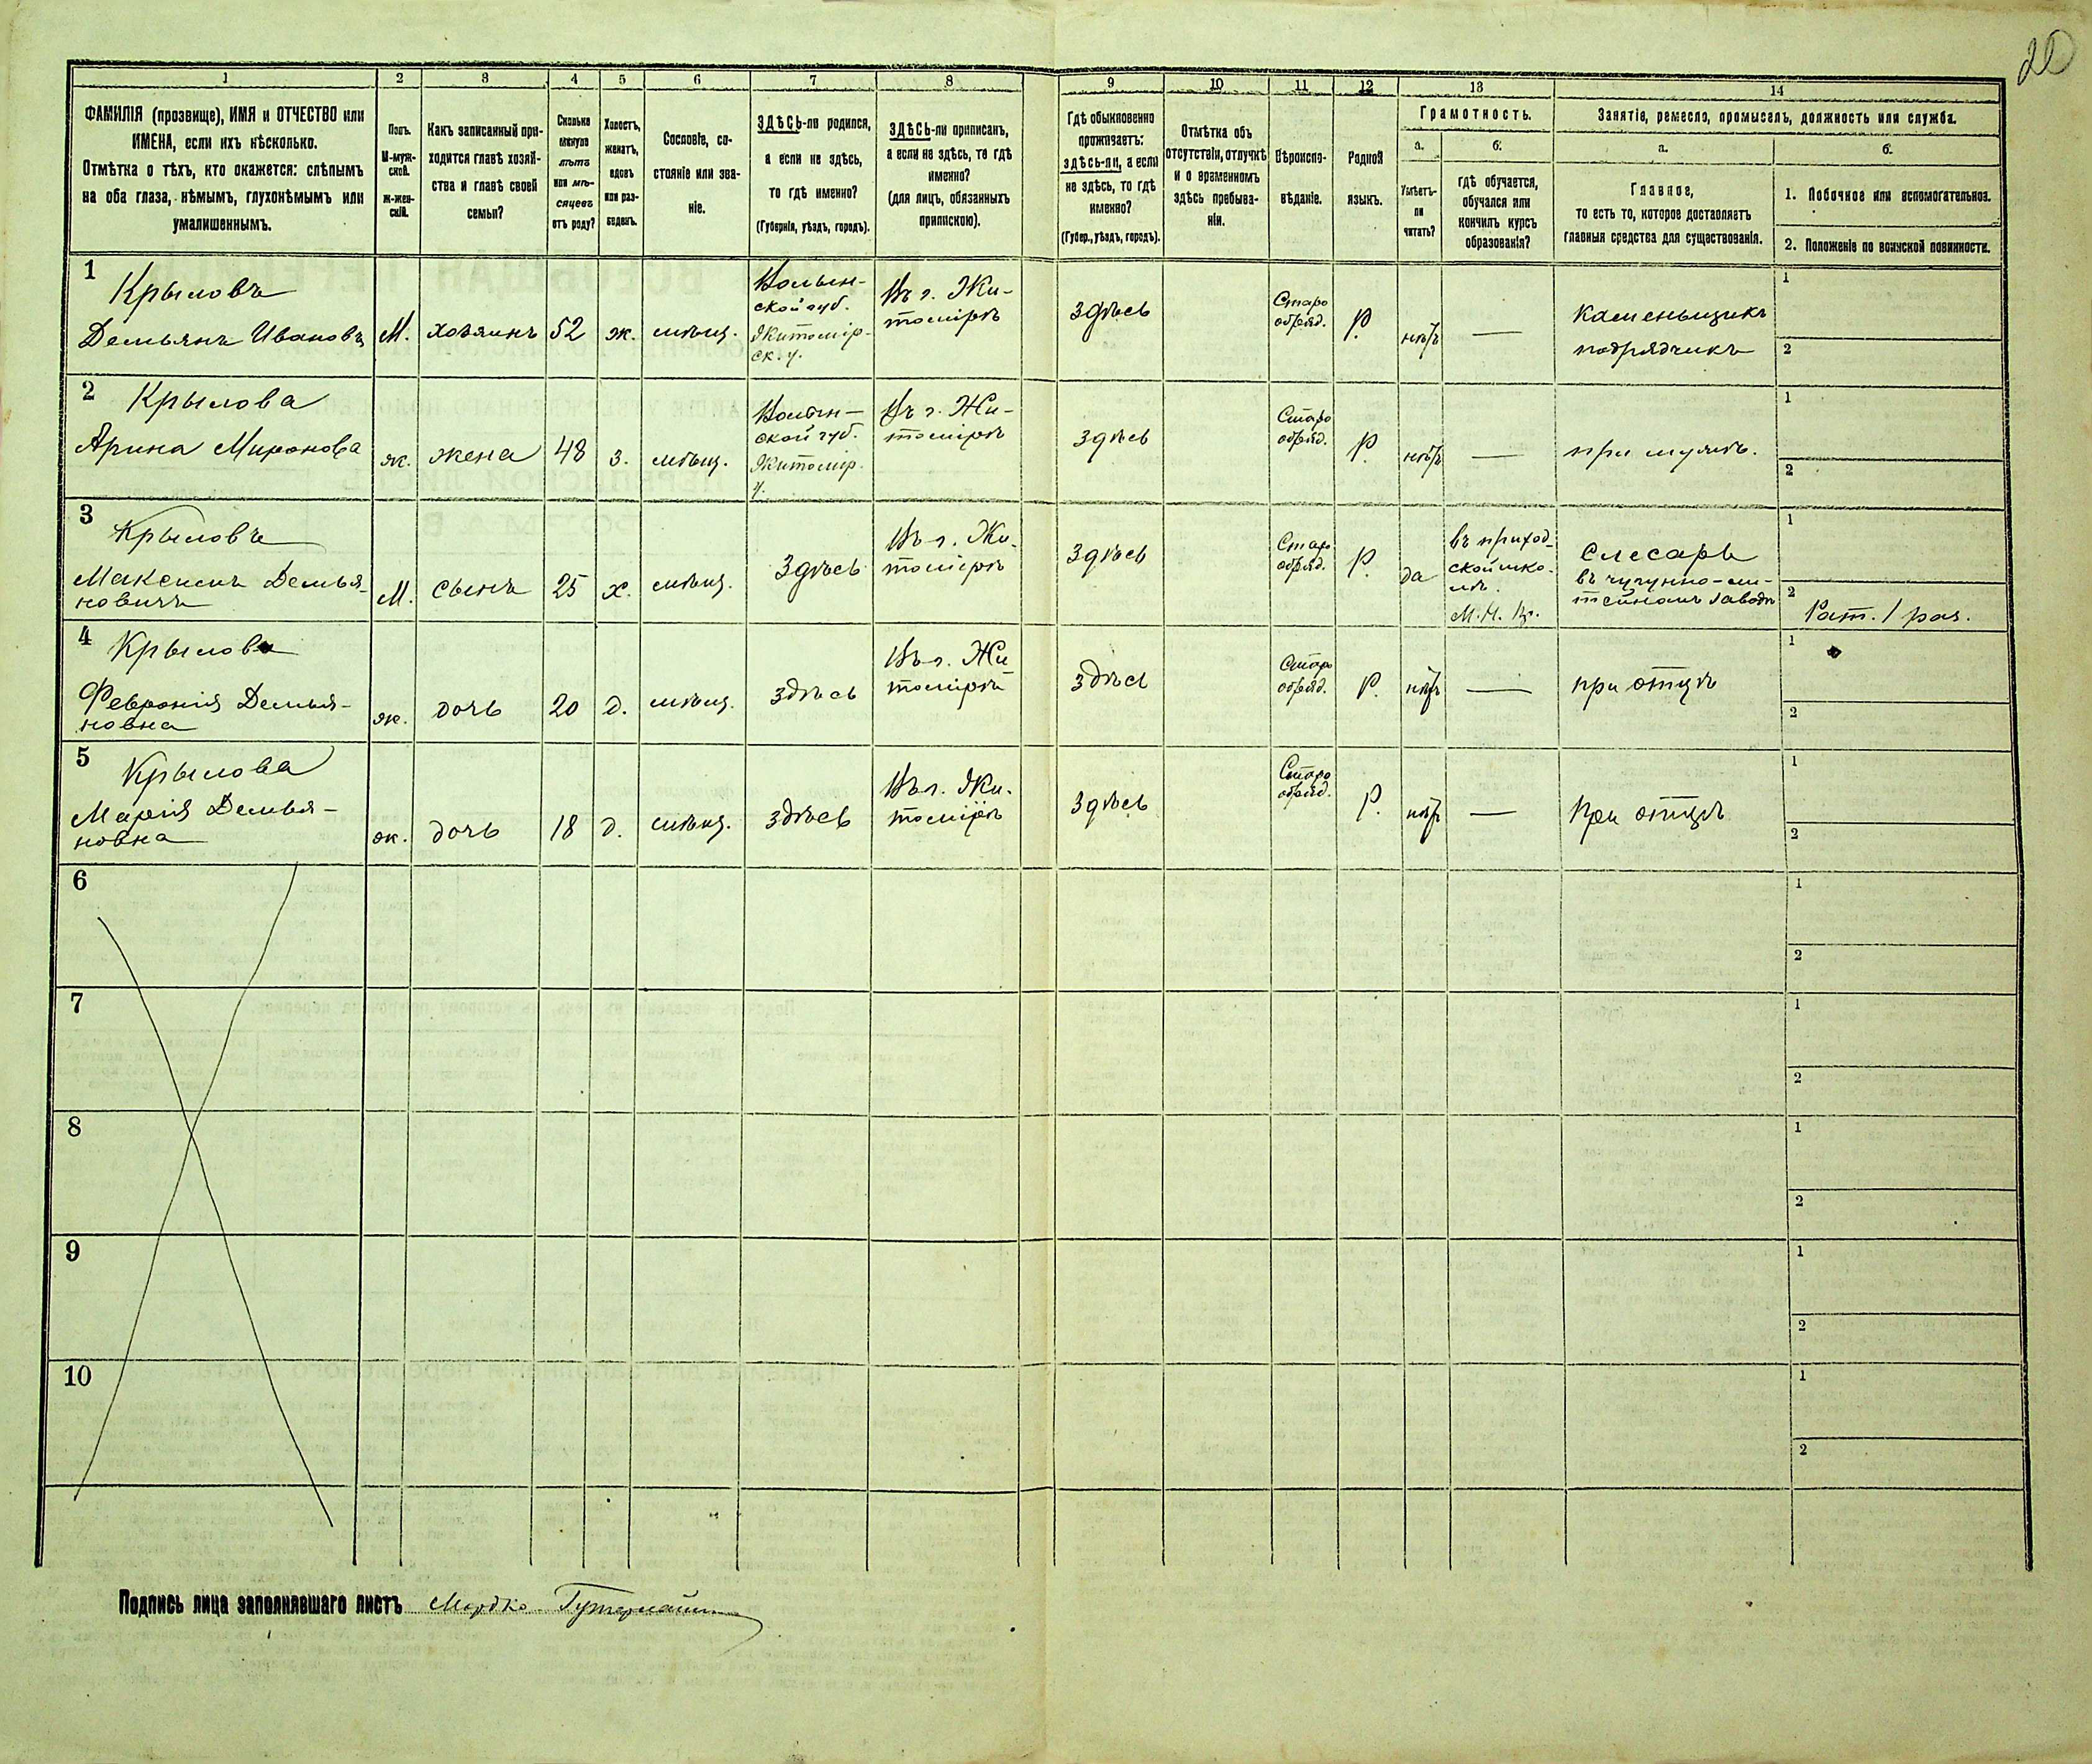 20
1 2 3 4 5 6 7 8 9 10 11 12 13 14
ФАМИЛІЯ (прозвище), ИМЯ и ОТЧЕСТВО или
ИМЕНА, если ихъ нѣсколько.
Отмѣтка о тѣхъ, кто окажется: слѣпымъ
на оба глаза, нѣмымъ, глухонѣмымъ или
умалишеннымъ.
Полъ.
М-муж-
ской.
ж-жен-
скій.
Какъ записанный при-
ходится главѣ хозяй-
ства и главѣ своей
семьи?
Сколько
минуло
лѣтъ
или мѣ-
сяцевъ
отъ роду?
Холостъ,
женатъ,
вдовъ
или раз-
веденъ.
Сословіе, со-
стояніе или зва-
ніе.
ЗДѢСЬ-ли родился,
а если не здѣсь,
то гдѣ именно?
(Губернія, уѣздъ, городъ).
ЗДѢСЬ-ли приписанъ,
а если не здѣсь, то гдѣ
именно?
(для лицъ, обязанныхъ
припискою).
Гдѣ обыкновенно
проживаетъ:
здѣсь-ли, а если
не здѣсь, то гдѣ
именно?
(Губер., уѣздъ, городъ).
Отмѣтка объ
отсутствіи, отлучкѣ
и о временномъ
здѣсь пребыва-
ніи.
Вѣроиспо-
вѣданіе.
Родной
языкъ.
Грамотность.
а.
Умѣетъ-
ли
читать?
б.
гдѣ обучается,
обучался или
кончилъ курсъ
образованія?
Занятіе, ремесло, промыселъ, должность или служба.
а.
Главное,
то есть то, которое доставляетъ
главныя средства для существованія.
б.
1. Побочное или вспомогательное.
2. Положеніе по воинской повинности.
1
Крыловъ
Демьянъ Ивановъ
М.
хозяинъ
52
ж.
мѣщ.
Волын-
ской губ.
Житомір-
ск. у.
Въ г. Жи-
томірѣ
Здѣсь
Старо
обряд.
Р.
нѣтъ
—
Каменьщикъ
подрядчикъ
1
2
2
Крылова
Арина Миронова
ж.
жена
48
з.
мѣщ.
Волын-
ской губ.
Житомір.
у.
Въ г. Жи-
томірѣ
Здѣсь
Старо
обряд.
Р.
нѣтъ
—
при мужѣ.
1
2
3
Крыловъ
Максимъ Демья-
новичъ
М.
сынъ
25
х.
мѣщ.
Здѣсь
Въ г. Жи-
томірѣ
Здѣсь
Старо
обряд.
Р.
да
въ приход-
ской шко-
лѣ.
М. Н. Пр.
Слесарь
въ чугунно-ли-
тейномъ заводѣ
1
2
Рат. 1 раз.
4
Крылова
Февронія Демья-
новна
ж.
дочь
20
д.
мѣщ.
здѣсь
Въ г. Жи-
томірѣ
здѣсь
Старо
обряд.
Р.
нѣтъ
—
при отцѣ
1
2
5
Крылова
Марія Демья-
новна
ж.
дочь
18
д.
мѣщ.
здѣсь
Въ г. Жи-
томірѣ
Здѣсь
Старо
обряд.
Р.
нѣтъ
—
При отцѣ
1
2
6
1
2
7
1
2
8
1
2
9
1
2
10
1
2
Подпись лица заполнявшаго листъ Мордко Гутермань